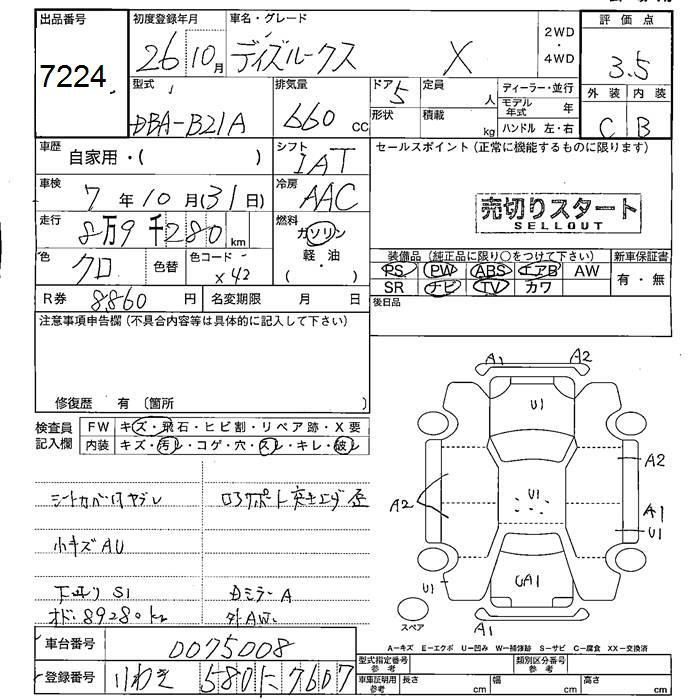 出品番号 初度登録年月 車名・グレード 評価点
7224 26 10月 ディズルークス X 2WD・4WD 3.5
型式 排気量 ドア 定員 ディーラー・並行 外装 内装
DBA-B21A 660 cc 5 人 モデル年式 年 C B
形状 積載 kg ハンドル 左・右
車歴 自家用・( ) シフト IAT セールスポイント(正常に機能するものに限ります)
車検 7年10月(31日) 冷房 AAC
売切りスタート
SELLOUT
走行 8万9千280km 燃料 ガソリン・軽油 ( )
色 クロ 色替 色コード X42
装備品(純正品に限り○をつけて下さい) 新車保証書
PS PW ABS エアB AW 有・無
SR ナビ TV カワ
R券 8,860円 名変期限 月 日 後日品
注意事項申告欄(不具合内容等は具体的に記入して下さい)
修復歴 有 〔箇所 〕
検査員記入欄 FW キズ・飛石・ヒビ割・リペア跡・X要
内装 キズ・汚レ・コゲ・穴・スレ・キレ・破レ
シートカバー付ヤブレ ロアサポート突き上げ歪
小キズAU
下廻りS1 Dミラー A
オド:89280km 外AW.
A1 A2
U1
A2
A2 U1 A1
U1
U1 UA1
スペア A1
A-キズ E-エクボ U-凹み W-補修跡 S-サビ C-腐食 XX-交換済
車台番号 0075008
型式指定番号 参考 類別区分番号 参考
登録番号 いわき 580 に 7607
車庫証明用 参考 長さ cm 幅 cm 高さ cm